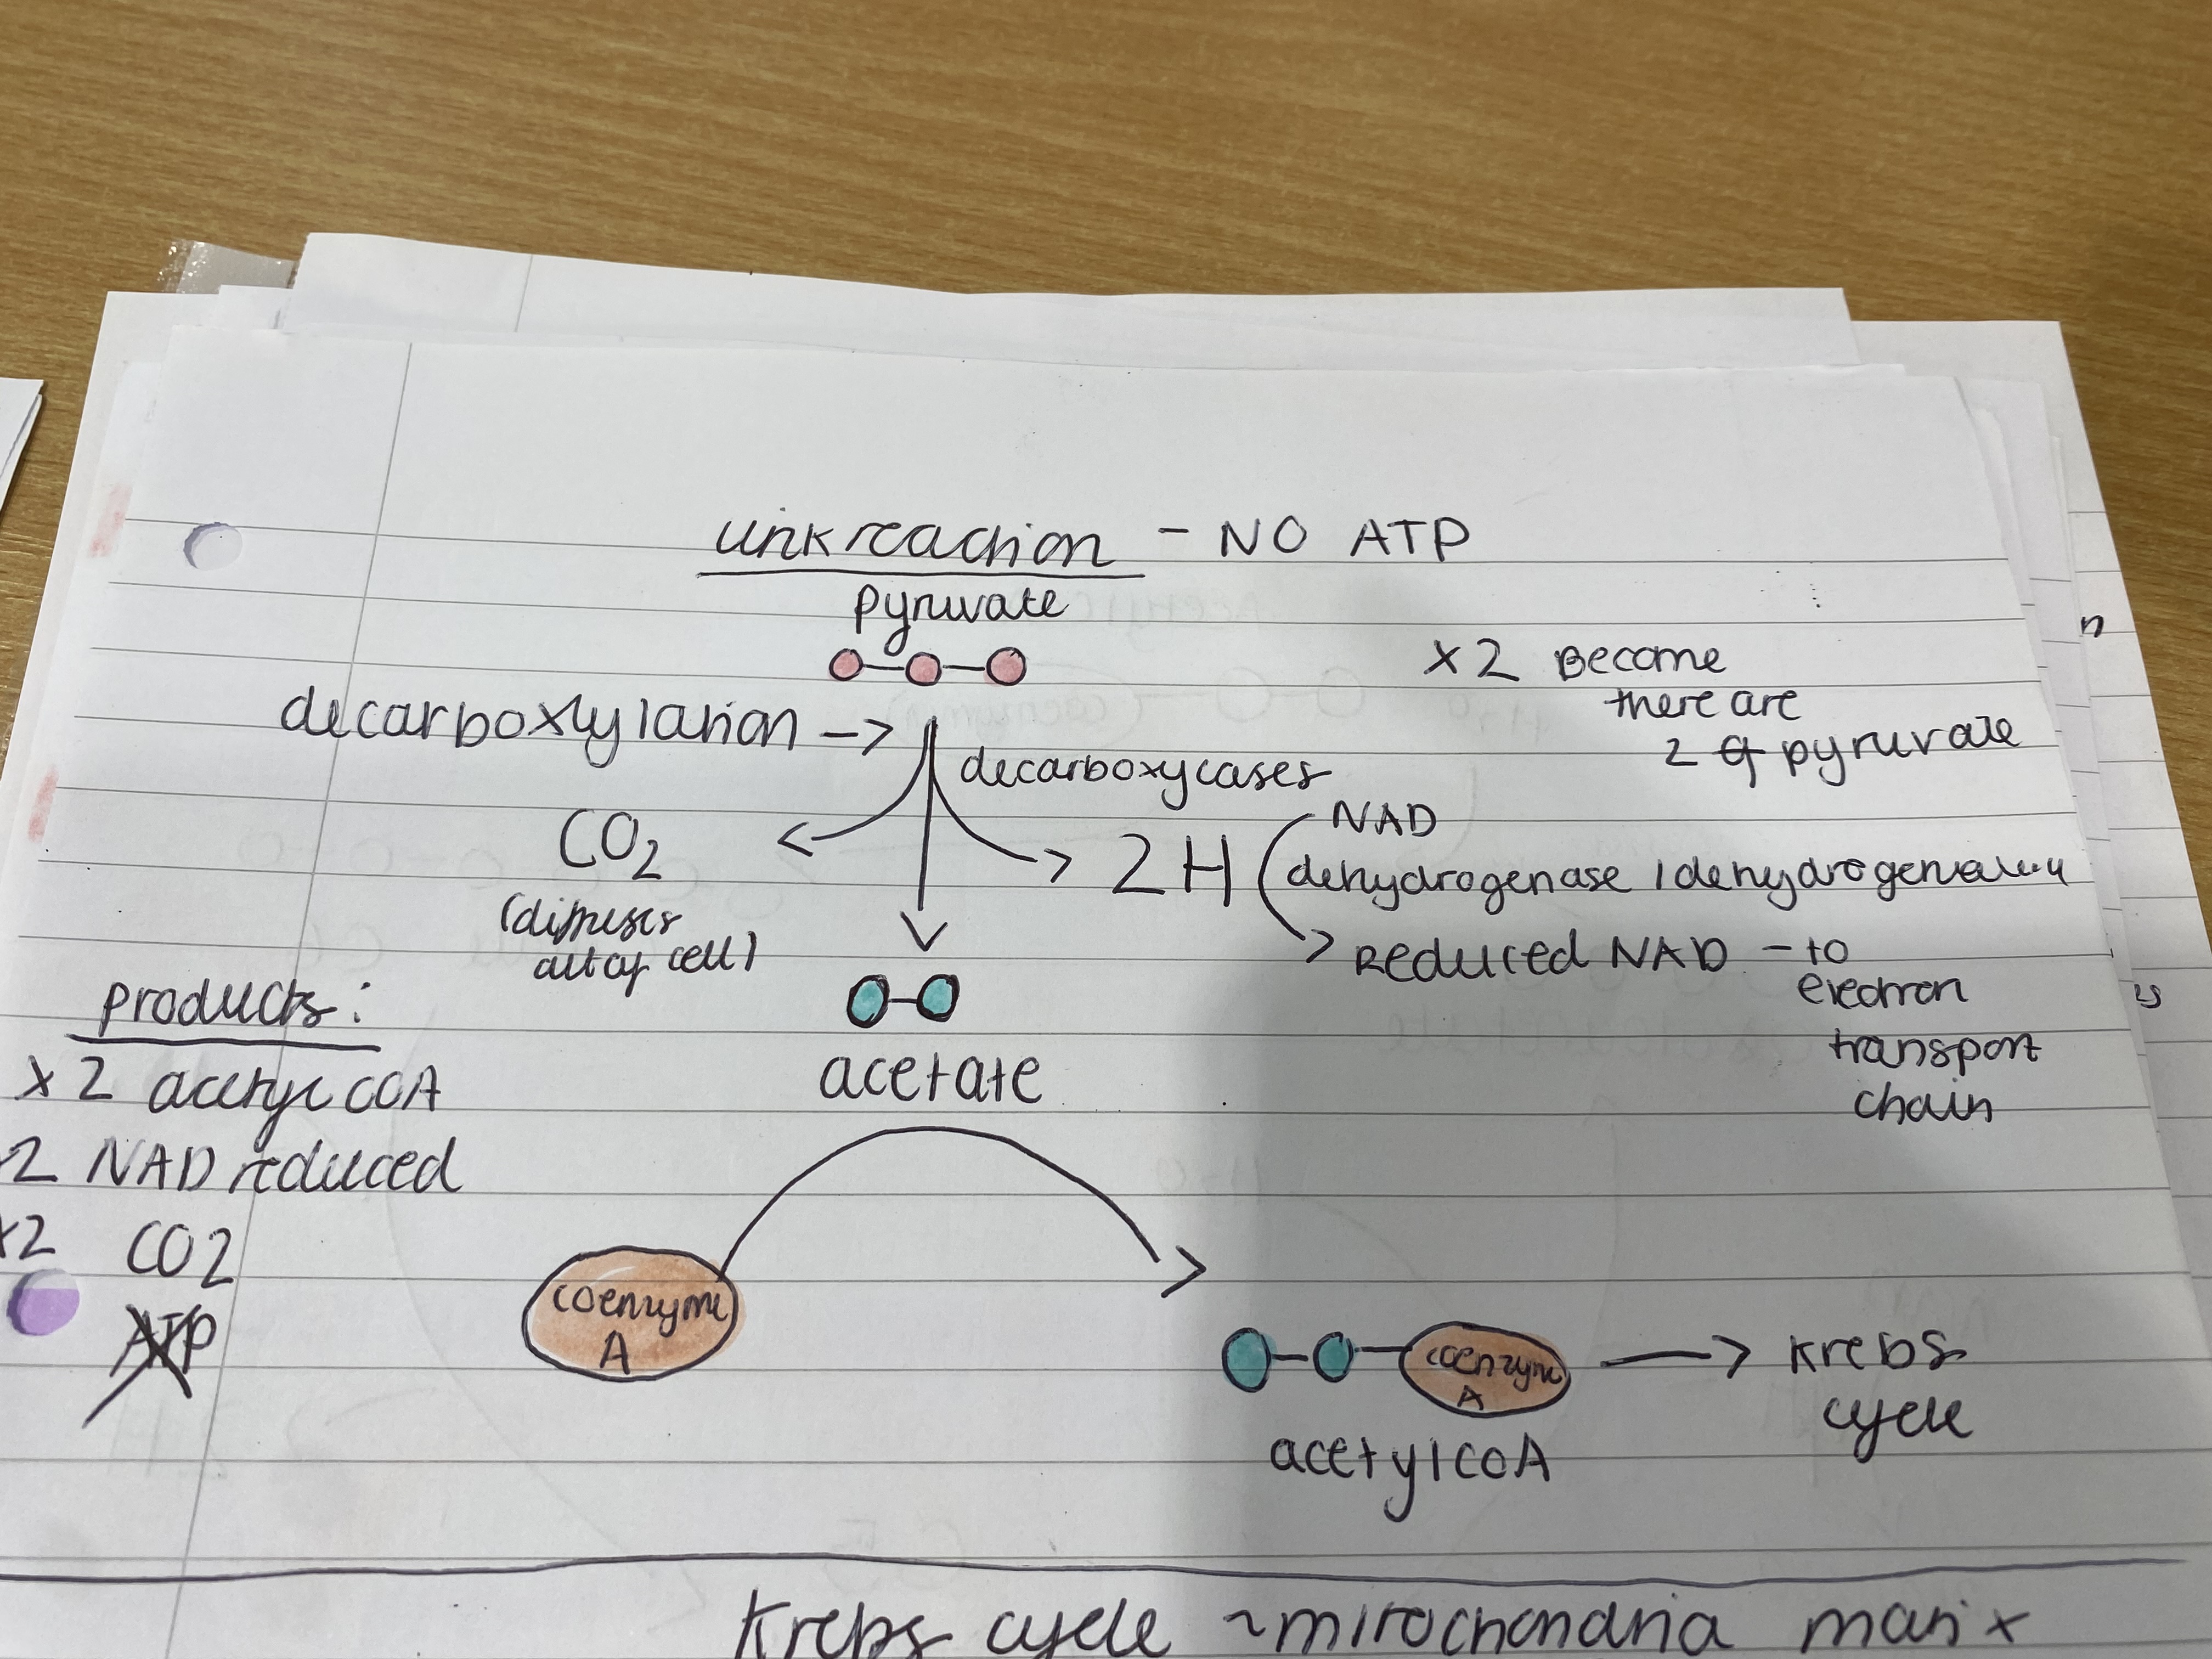 link reaction - NO ATP
pyruvate
x2 Become
there are
2 of pyruvate
decarboxylation ->
decarboxycases
CO2
(diffuses
out of cell)
2H
NAD
dehydrogenase / dehydrogenation
reduced NAD - to
electron
transport
chain
acetate
products:
x2 acetyl COA
2 NAD reduced
x2 CO2
ATP
coenzyme
A
coenzyme
A
acetyl COA
Krebs
cycle
Krebs cycle ~ mitochondria matrix